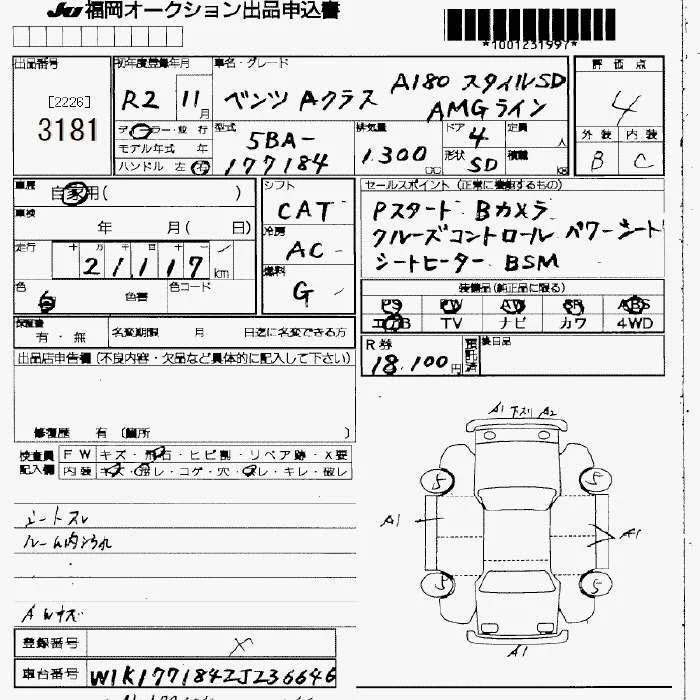 JU福岡オークション出品申込書
*1001231997*
出品番号 初年度登録年月 車名・グレード 評価点
[2226]
3181
R2 11月 ベンツ Aクラス A180 スタイルSD
AMGライン
4
ディーラー・並行 型式 排気量 ドア 定員 人 外装 内装
モデル年式 年 5BA- 4
ハンドル 左 右 177184 1.300 cc 形状 SD 積載 kg B C
車歴 自家用( ) シフト セールスポイント(正常に機能するもの)
CAT Pスタート Bカメラ
車検 年 月( 日) 冷房 クルーズコントロール パワーシート
AC シートヒーター BSM
走行 十 万 千 百 十 一
21117km
燃料 装備品(純正品に限る)
色 白 色替 色コード G PS PW AW SR ABS
エアB TV ナビ カワ 4WD
保証書 有・無 名変期限 月 日迄に名変できる方 R券 預託済 後日品
18,100円
出品店申告欄(不良内容・欠品など具体的に記入して下さい)
修復歴 有 (箇所 )
検査員 FW キズ・飛石・ヒビ割・リペア跡・X要
記入欄 内装 キズ・汚レ・コゲ・穴・スレ・キレ・破レ
A1 下スリ A2
5 5
シートスレ
A1 A1
ルーム内汚れ
5 5
AWキズ
登録番号 ×
A1
車台番号 W1K1771842J236646